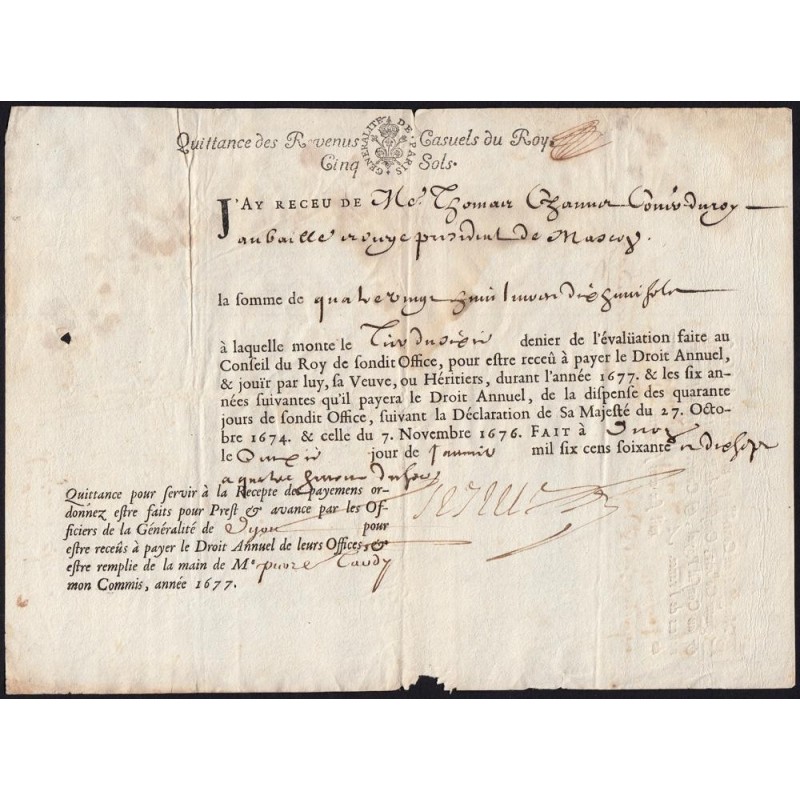 Quittance des Revenus Casuels du Roy.
GENERALITÉ DE PARIS
Cinq Sols.
J'AY RECEU DE Me. Thomas duroy
au baille president de
la somme de quatre vingt huit dix huit sols
à laquelle monte le denier de l'évalüation faite au
Conseil du Roy de sondit Office, pour estre receû à payer le Droit Annuel,
& jouïr par luy, sa Veuve, ou Héritiers, durant l'année 1677. & les six an-
nées suivantes qu'il payera le Droit Annuel, de la dispense des quarante
jours de sondit Office, suivant la Déclaration de Sa Majesté du 27. Octo-
bre 1674. & celle du 7. Novembre 1676. FAIT à
le jour de Janvier mil six cens soixante et dix sept
Quittance pour servir à la Recepte des payemens or-
donnez estre faits pour Prest & avance par les Of-
ficiers de la Généralité de Dijon pour
estre receûs à payer le Droit Annuel de leurs Offices, &
estre remplie de la main de Me pierre
mon Commis, année 1677.